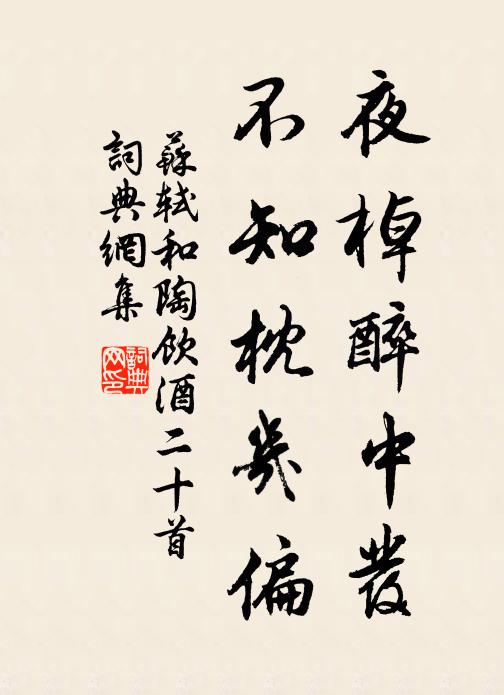 夜棹醉中發
不知枕几偏
蘇軾和陶飲酒二十首
詞典網集
詞典網印